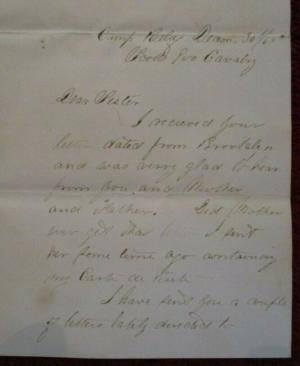 Camp
Cavalry
Dear Sister
I received your
letter dated from Brooklyn
and was very glad to hear
from you, and Mother
and Father. Did Mother
ever get that I sent
her some time ago containing
my Carte de
I have sent you a couple
of letters lately directed to